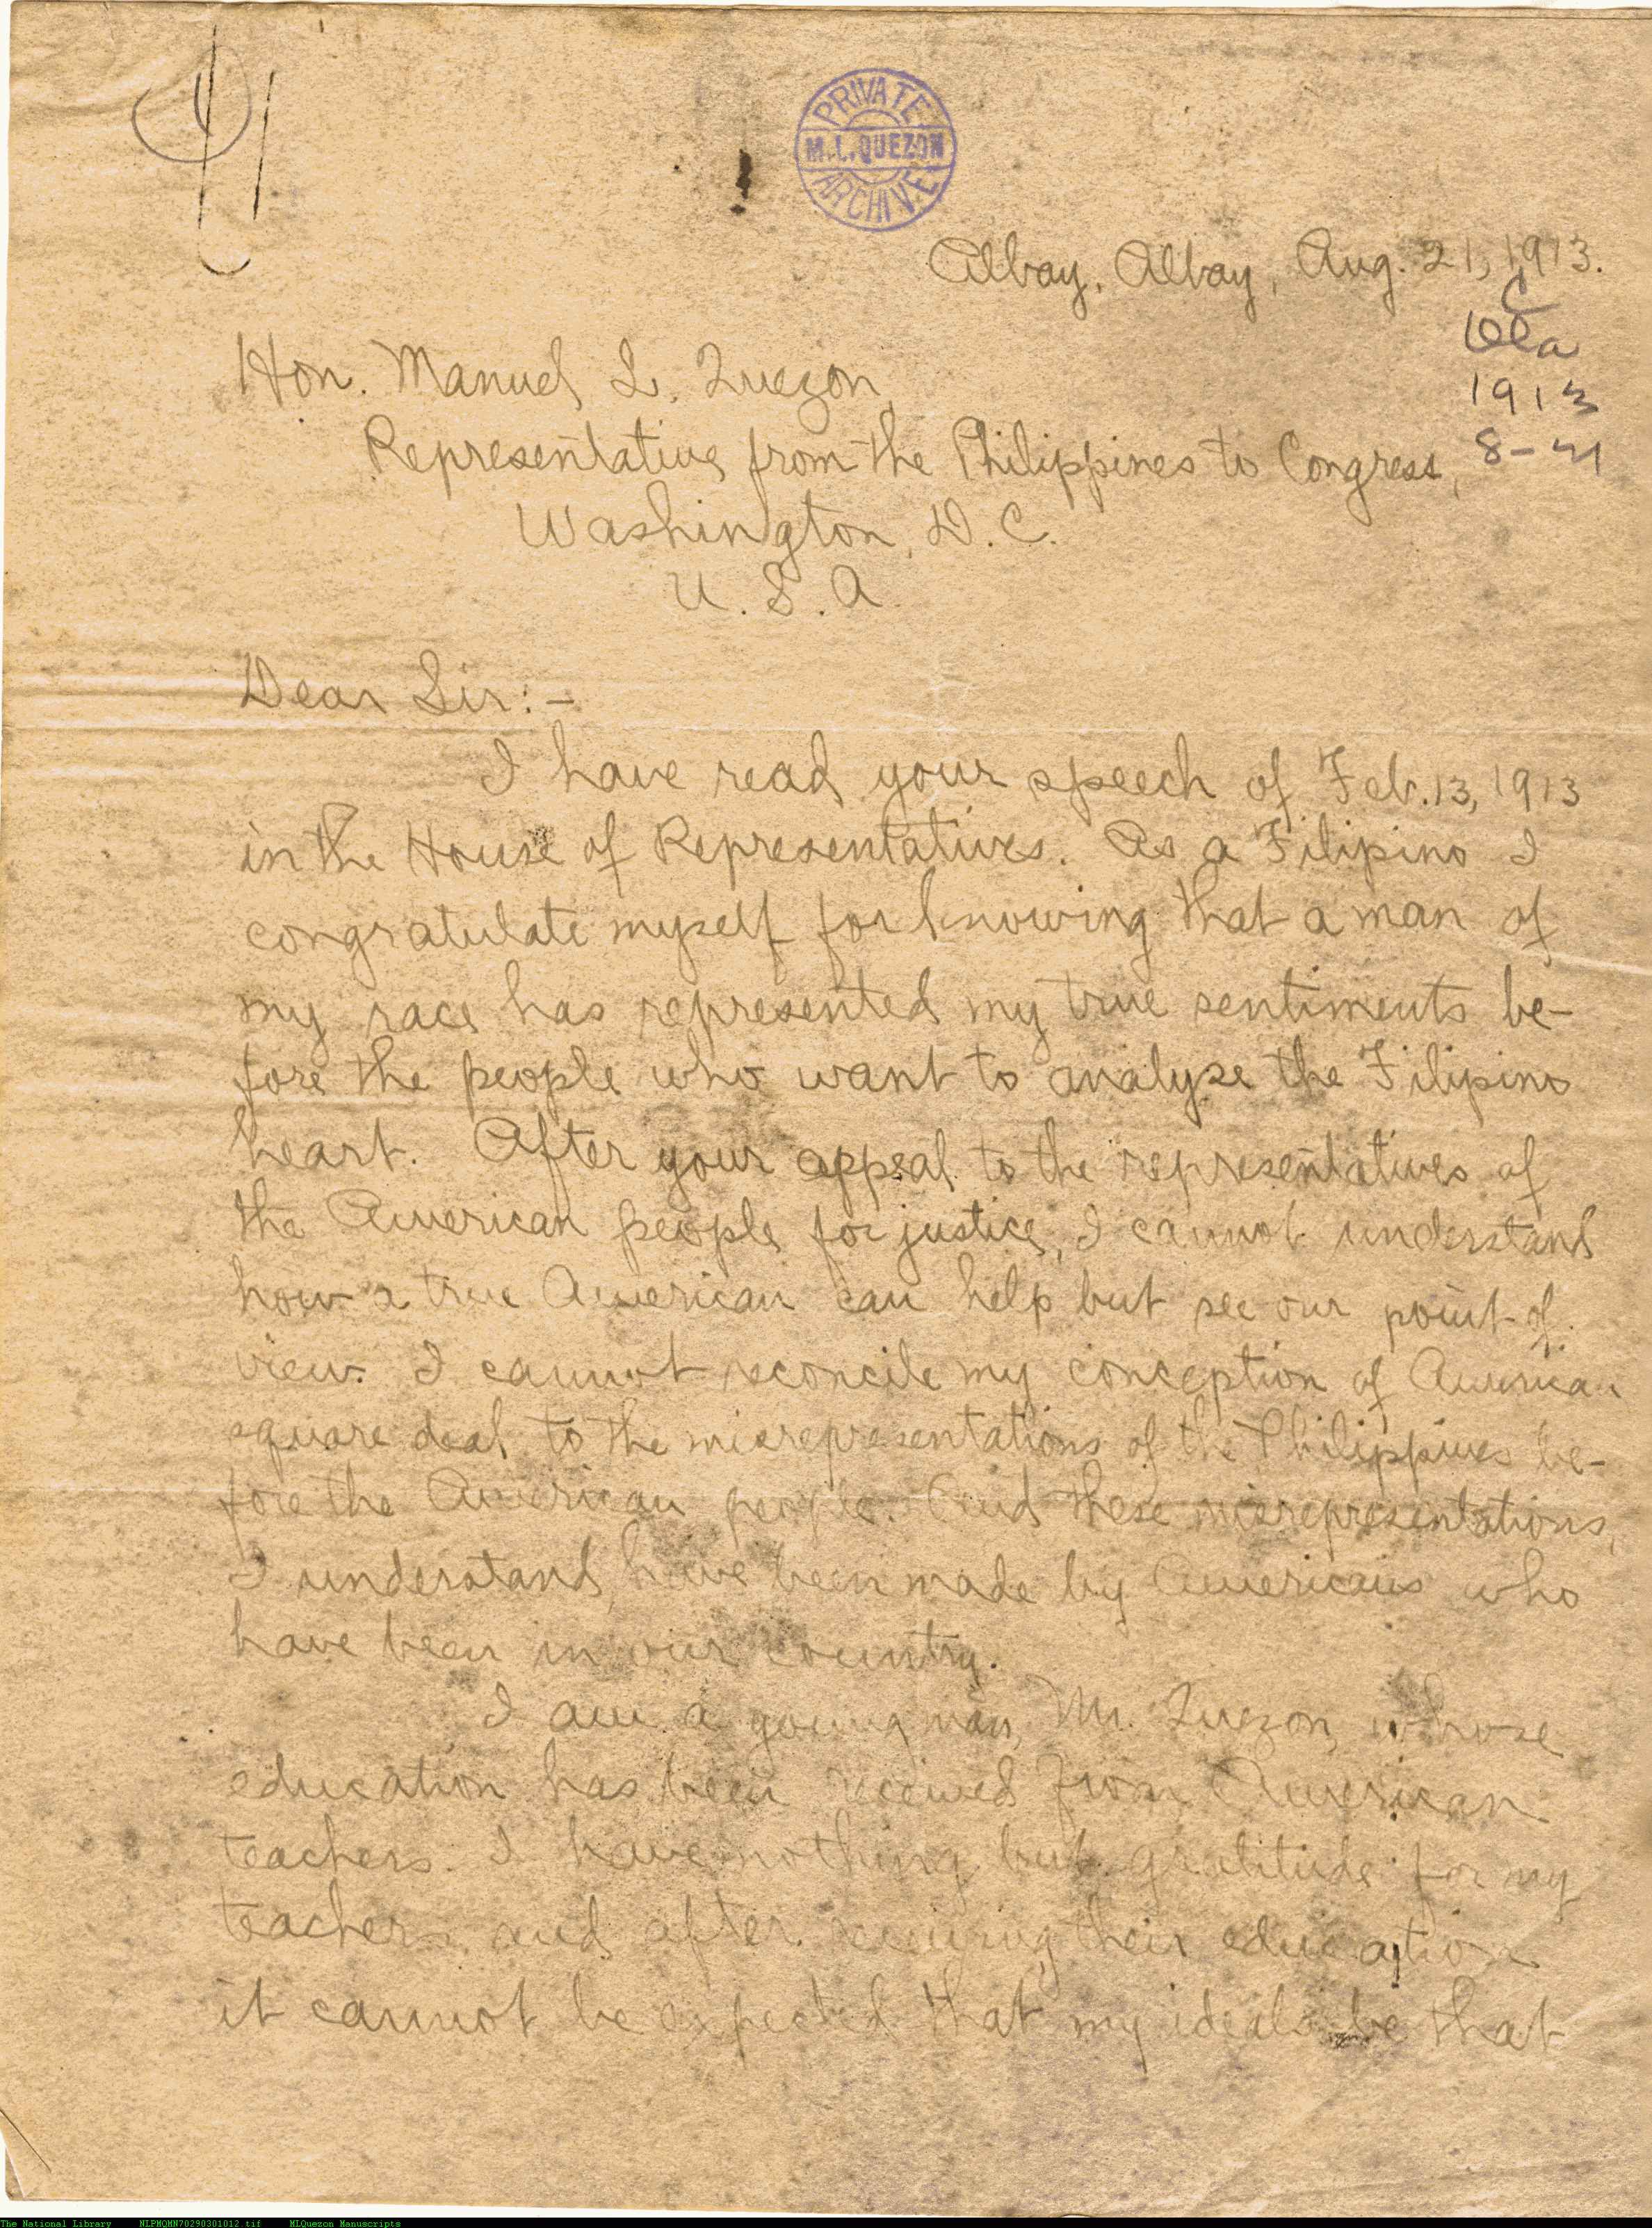 PRIVATE
M.L.QUEZON
ARCHIVE
Albay, Albay, Aug. 21, 1913.
C
Ola
1913
8-21
Hon. Manuel L. Quezon,
Representative from the Philippines to Congress,
Washington, D.C.
U.S.A
Dear Sir:-
I have read your speech of Feb. 13, 1913
in the House of Representatives. As a Filipino I
congratulate myself for knowing that a man of
my race has represented my true sentiments be-
fore the people who want to analyze the Filipino
heart. After your appeal to the representatives of
the American people for justice, I cannot understand
how a true American can help but see our point of
view. I cannot reconcile my conception of American
square deal to the misrepresentations of the Philippines be-
fore the American people. And these misrepresentations,
I understand, have been made by Americans who
have been in our country.
I am a young man, Mr. Quezon, whose
education has been received from American
teachers. I have nothing but gratitude for my
teachers and after receiving their education
it cannot be expected that my ideals be that
The National Library NLPMQMN70290301012.tif MLQuezon Manuscripts